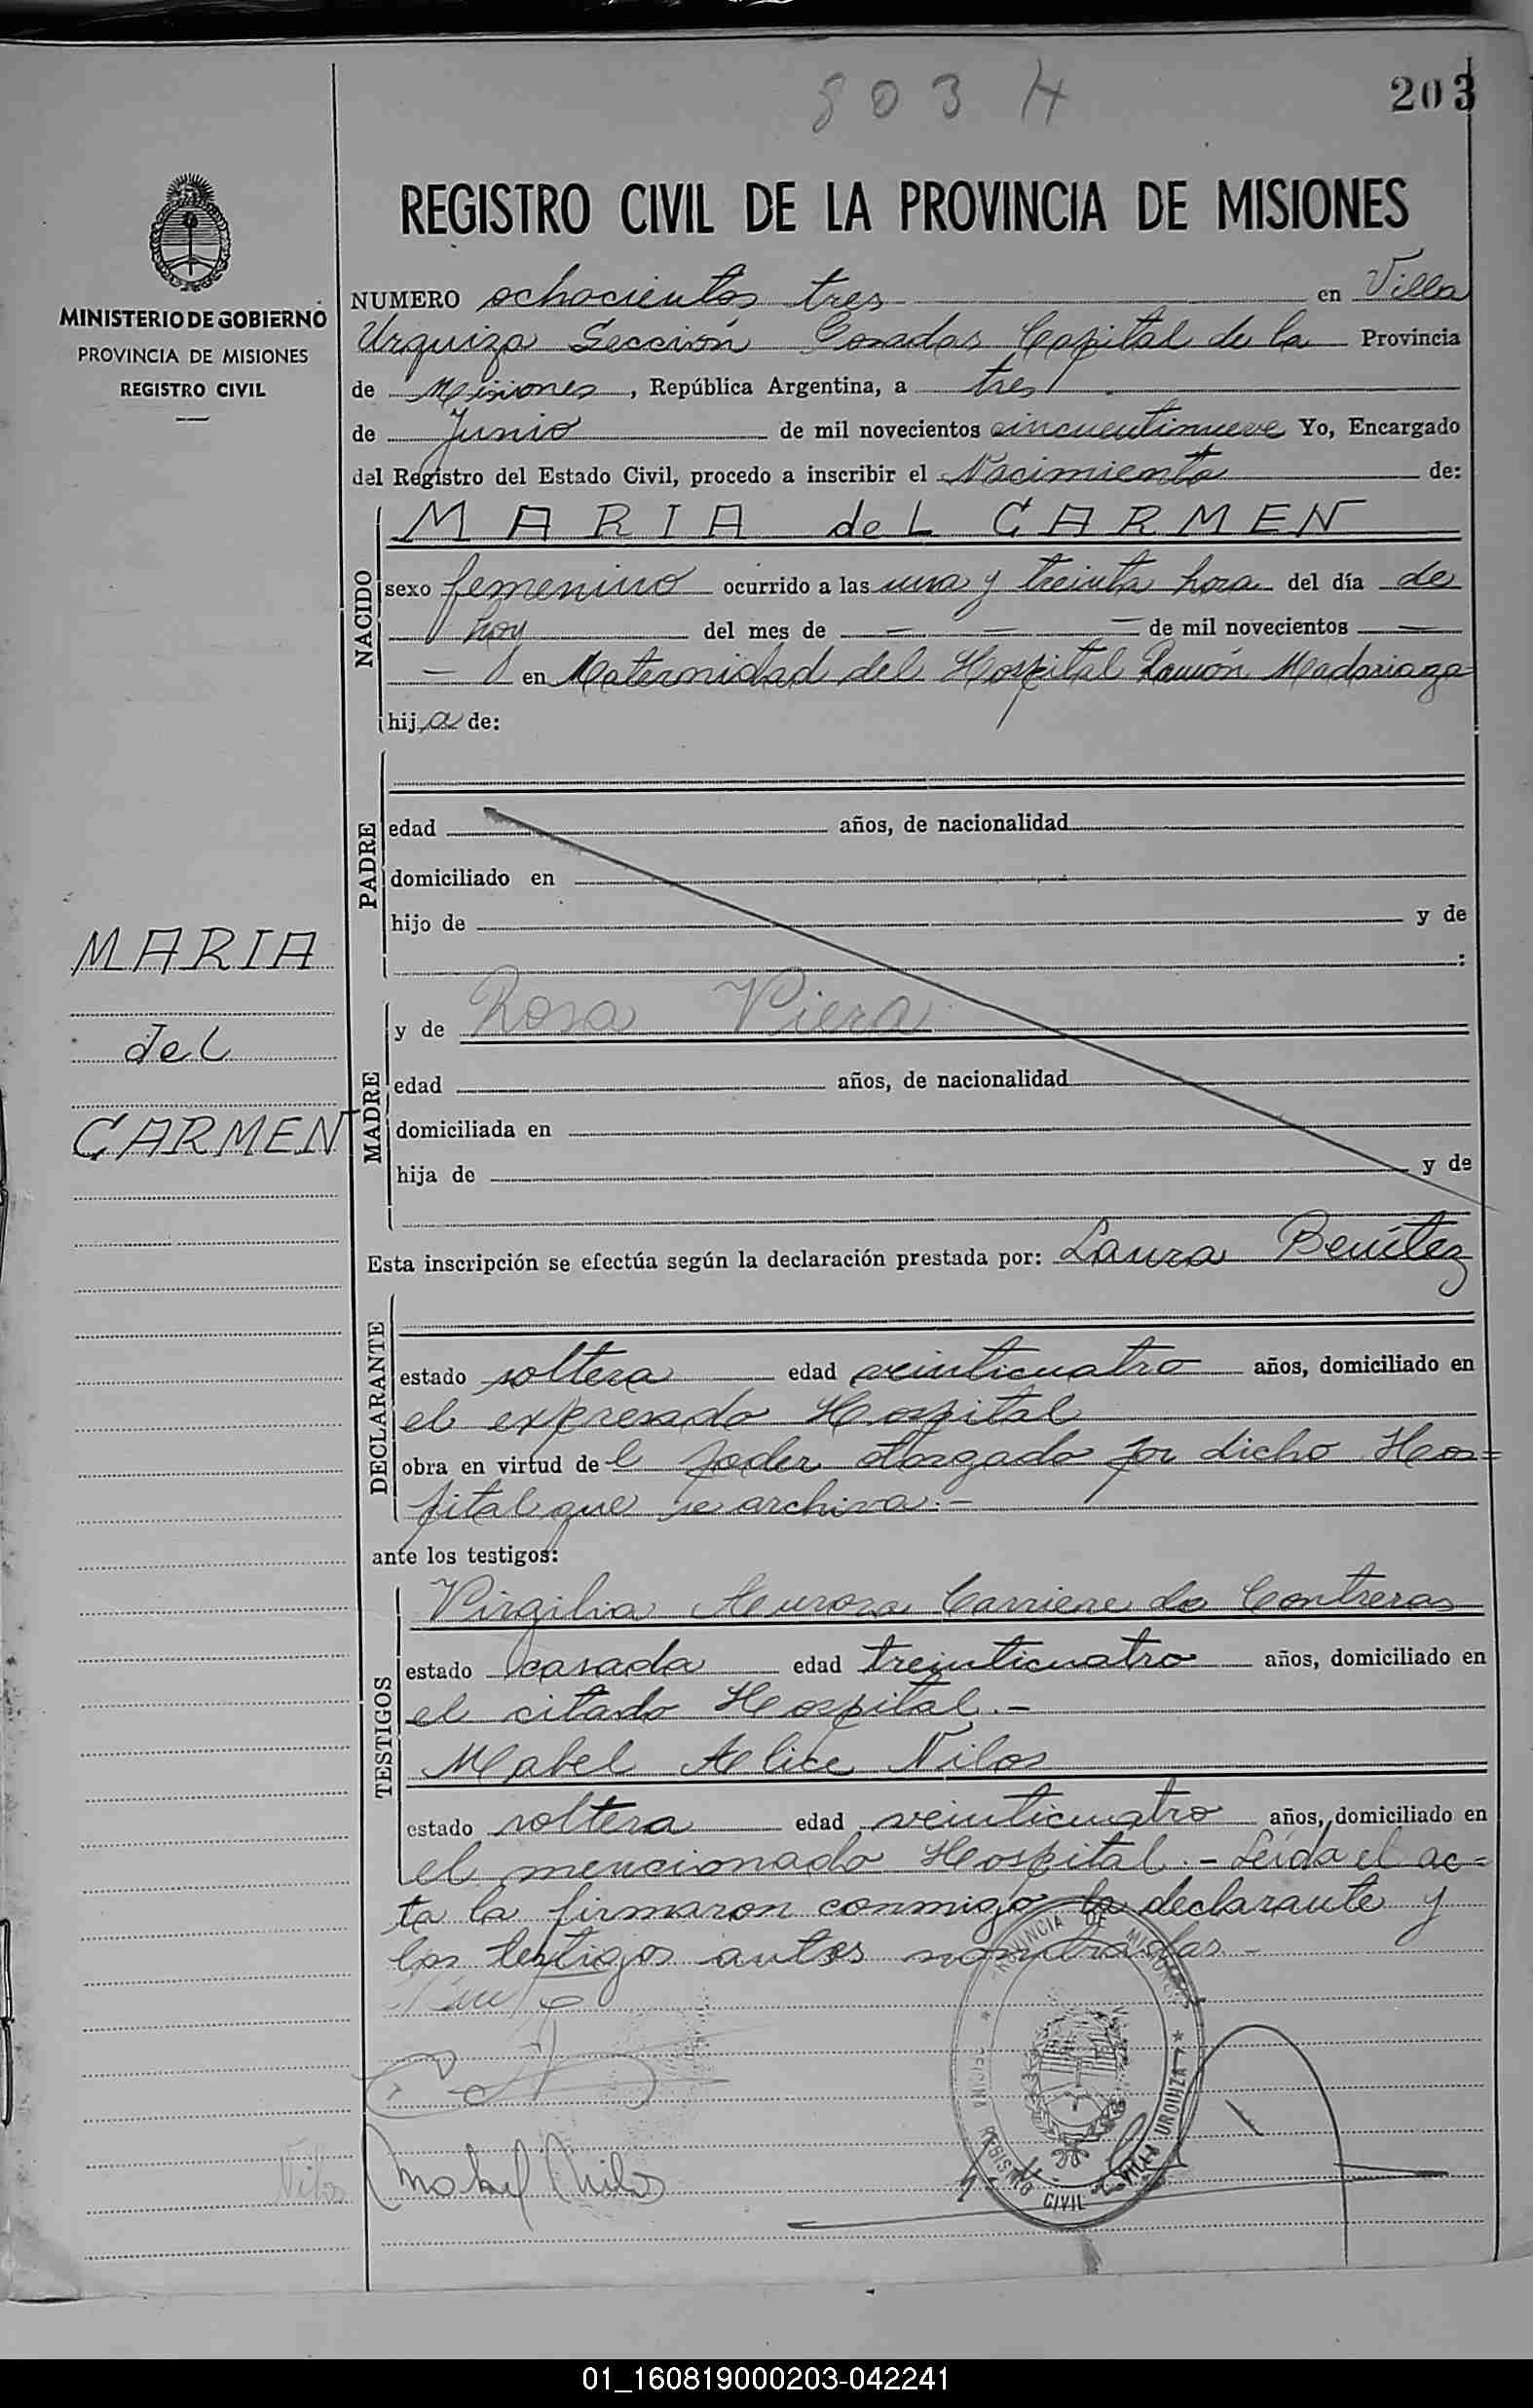 803 H
203
REGISTRO CIVIL DE LA PROVINCIA DE MISIONES
MINISTERIO DE GOBIERNO
PROVINCIA DE MISIONES
REGISTRO CIVIL
NUMERO ochocientos tres en Villa
Urquiza Sección Posadas Capital de la Provincia
de Misiones, República Argentina, a tres
de Junio de mil novecientos cincuentinueve Yo, Encargado
del Registro del Estado Civil, procedo a inscribir el Nacimiento de:
NACIDO
MARIA deL CARMEN
sexo femenino ocurrido a las una y treinta hora del día de
hoy del mes de — — — de mil novecientos —
— en Maternidad del Hospital Ramón Madariaga
hija de:
PADRE
edad años, de nacionalidad
domiciliado en
hijo de y de
:
MARIA
del
CARMEN
MADRE
y de Rosa Viera
edad años, de nacionalidad
domiciliada en
hija de y de
Esta inscripción se efectúa según la declaración prestada por: Laura Benítez
DECLARANTE
estado soltera edad veinticuatro años, domiciliado en
el expresado Hospital
obra en virtud del poder otorgado por dicho Hos=
pital que se archiva.-
ante los testigos:
TESTIGOS
Virgilia Aurora Carriere de Contreras
estado casada edad treinticuatro años, domiciliado en
el citado Hospital.-
Mabel Alice Nilos
estado soltera edad veinticuatro años, domiciliado en
el mencionado Hospital.- Leída el ac=
ta la firmaron conmigo la declarante y
los testigos antes nombradas-
PROVINCIA DE MISIONES
OFICINA REGISTRO CIVIL VILLA URQUIZA
Mabel Nilos
Nilos
01_160819000203-042241